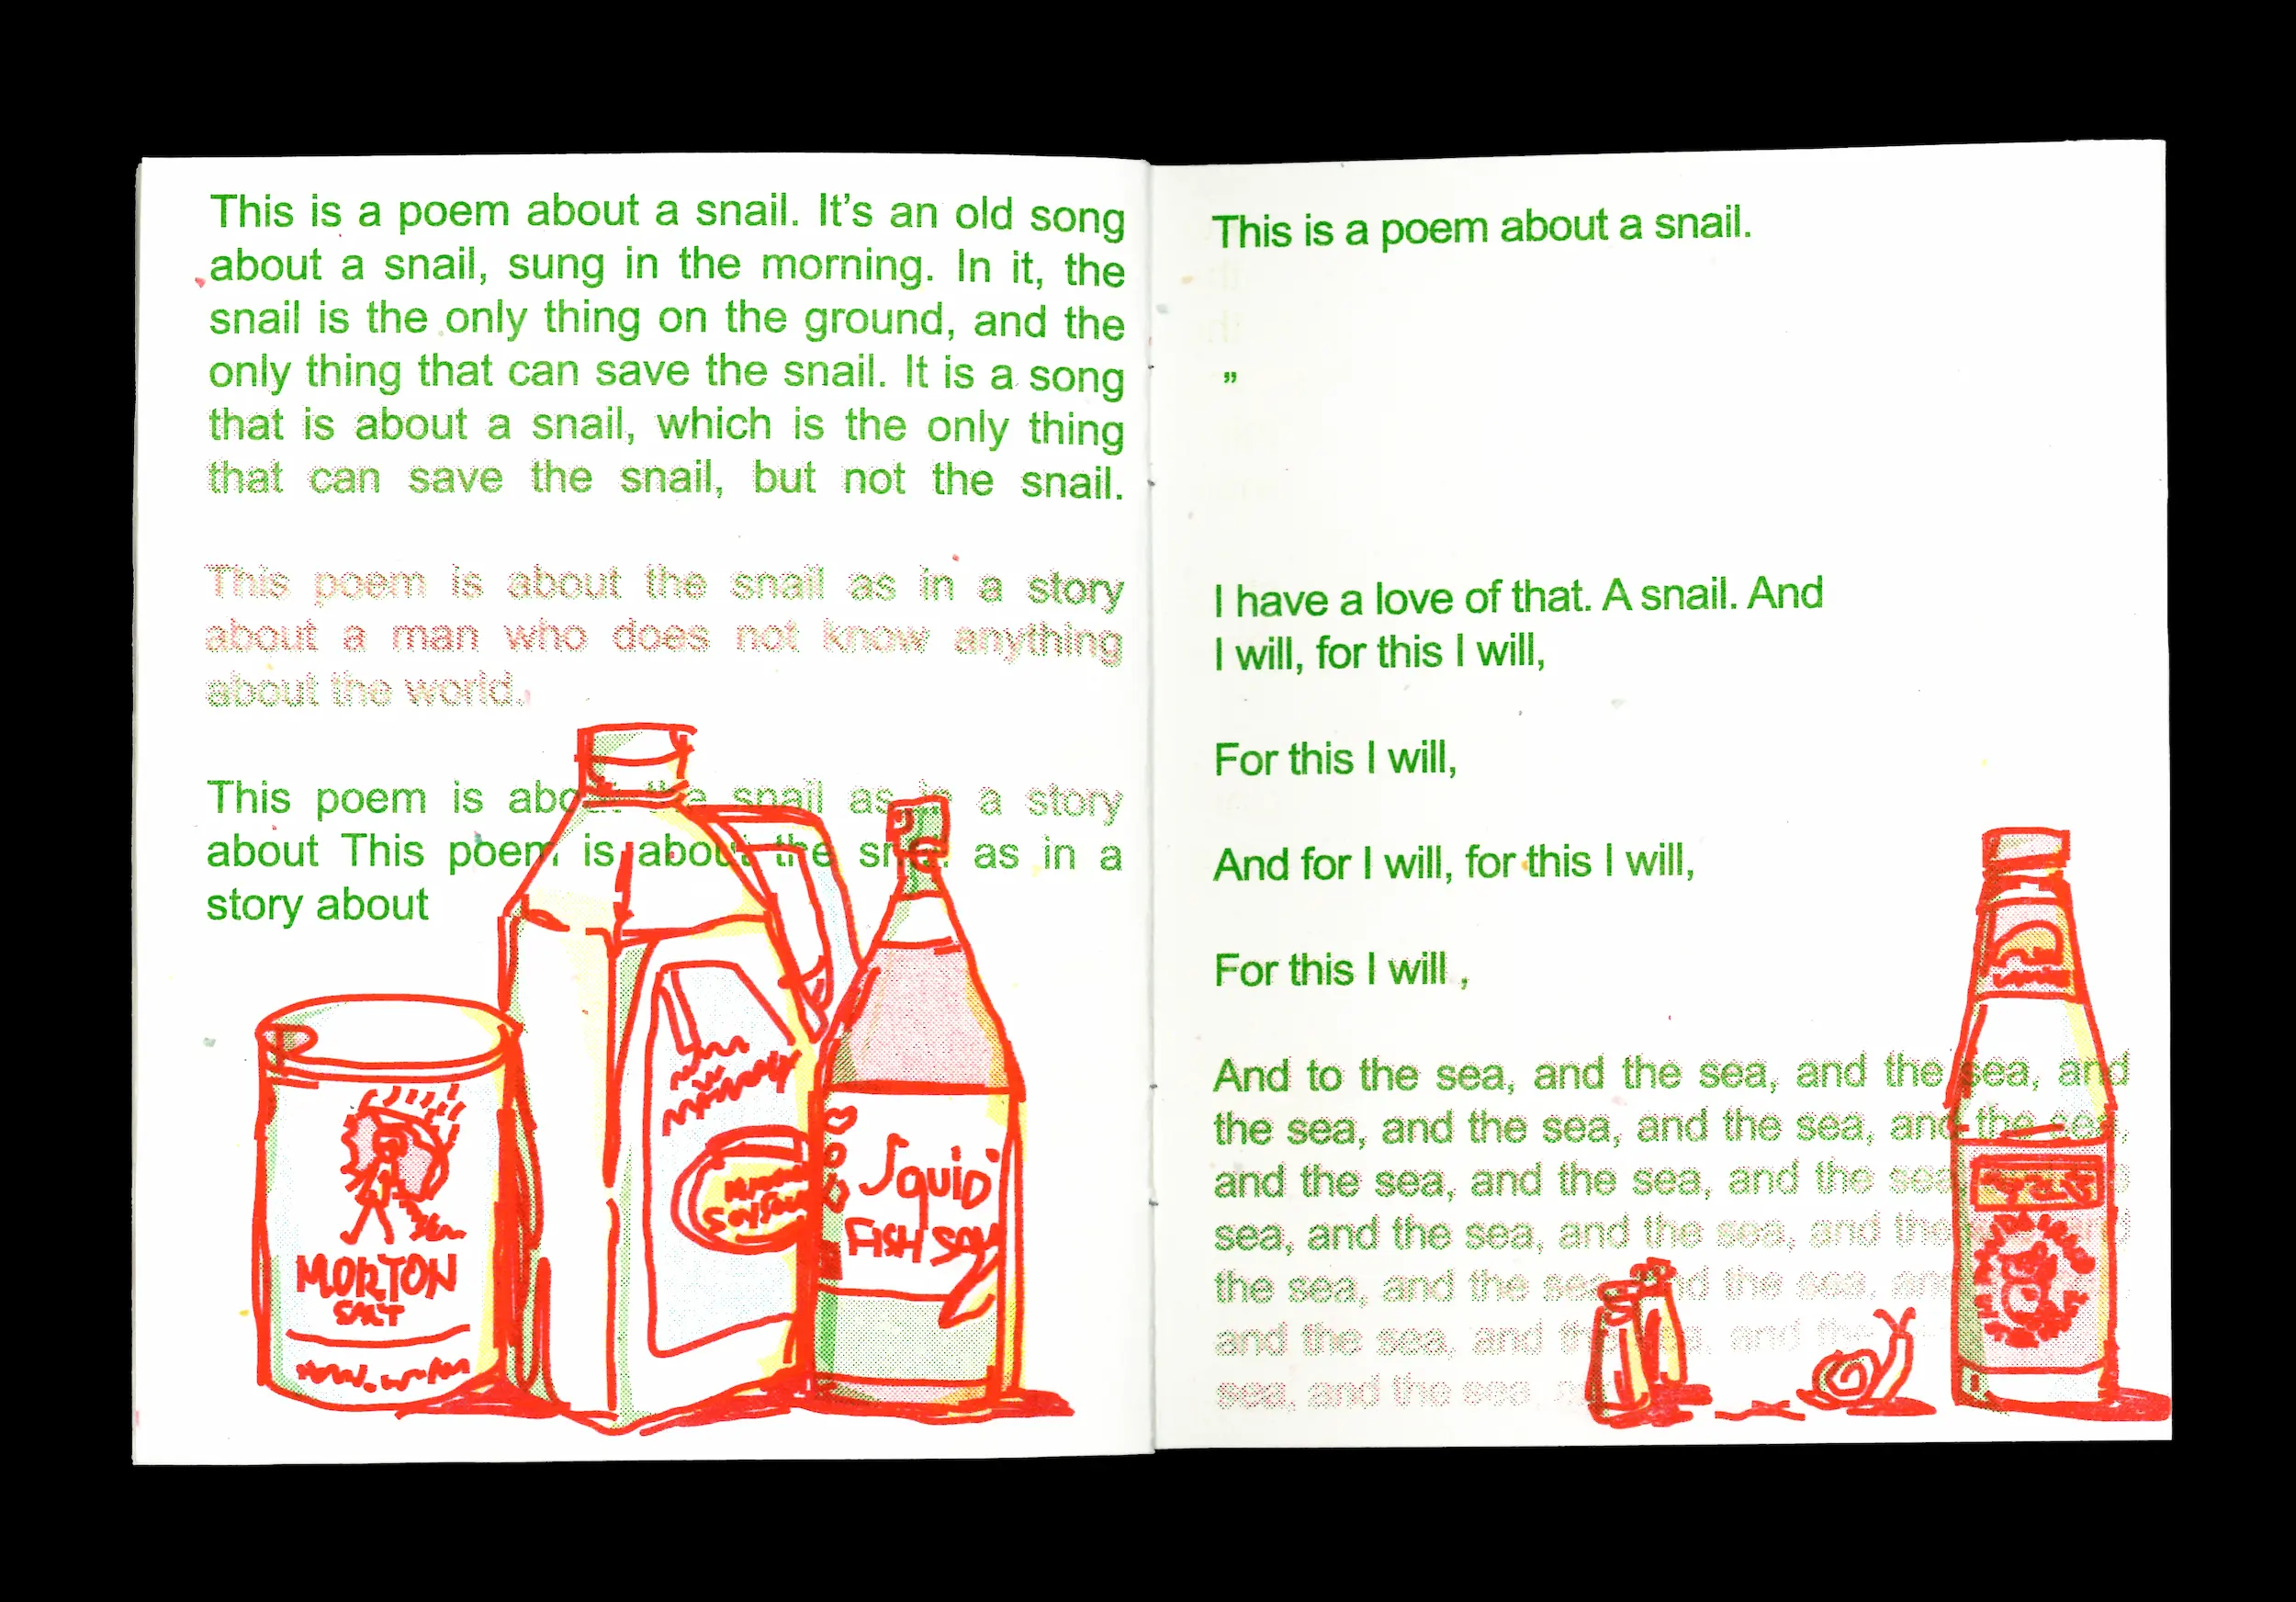 This is a poem about a snail. It’s an old song
about a snail, sung in the morning. In it, the
snail is the only thing on the ground, and the
only thing that can save the snail. It is a song
that is about a snail, which is the only thing
that can save the snail, but not the snail.
This poem is about the snail as in a story
about a man who does not know anything
about the world.
This poem is about the snail as in a story
about This poem is about the snail as in a
story about
MORTON
SALT
Squid
FISH
This is a poem about a snail.
”
I have a love of that. A snail. And
I will, for this I will,
For this I will,
And for I will, for this I will,
For this I will ,
And to the sea, and the sea, and the sea, and
the sea, and the sea, and the sea, and the sea,
and the sea, and the sea, and the sea
sea, and the sea, and the sea, and the
the sea, and the sea, and the sea, and
and the sea, and the sea, and the
sea, and the sea